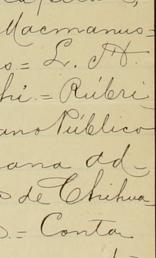 Macmanus=
s.= L. H.
hi.= Rúbri
ano Público
ana ad-
s de Chihua-
s.= Conta